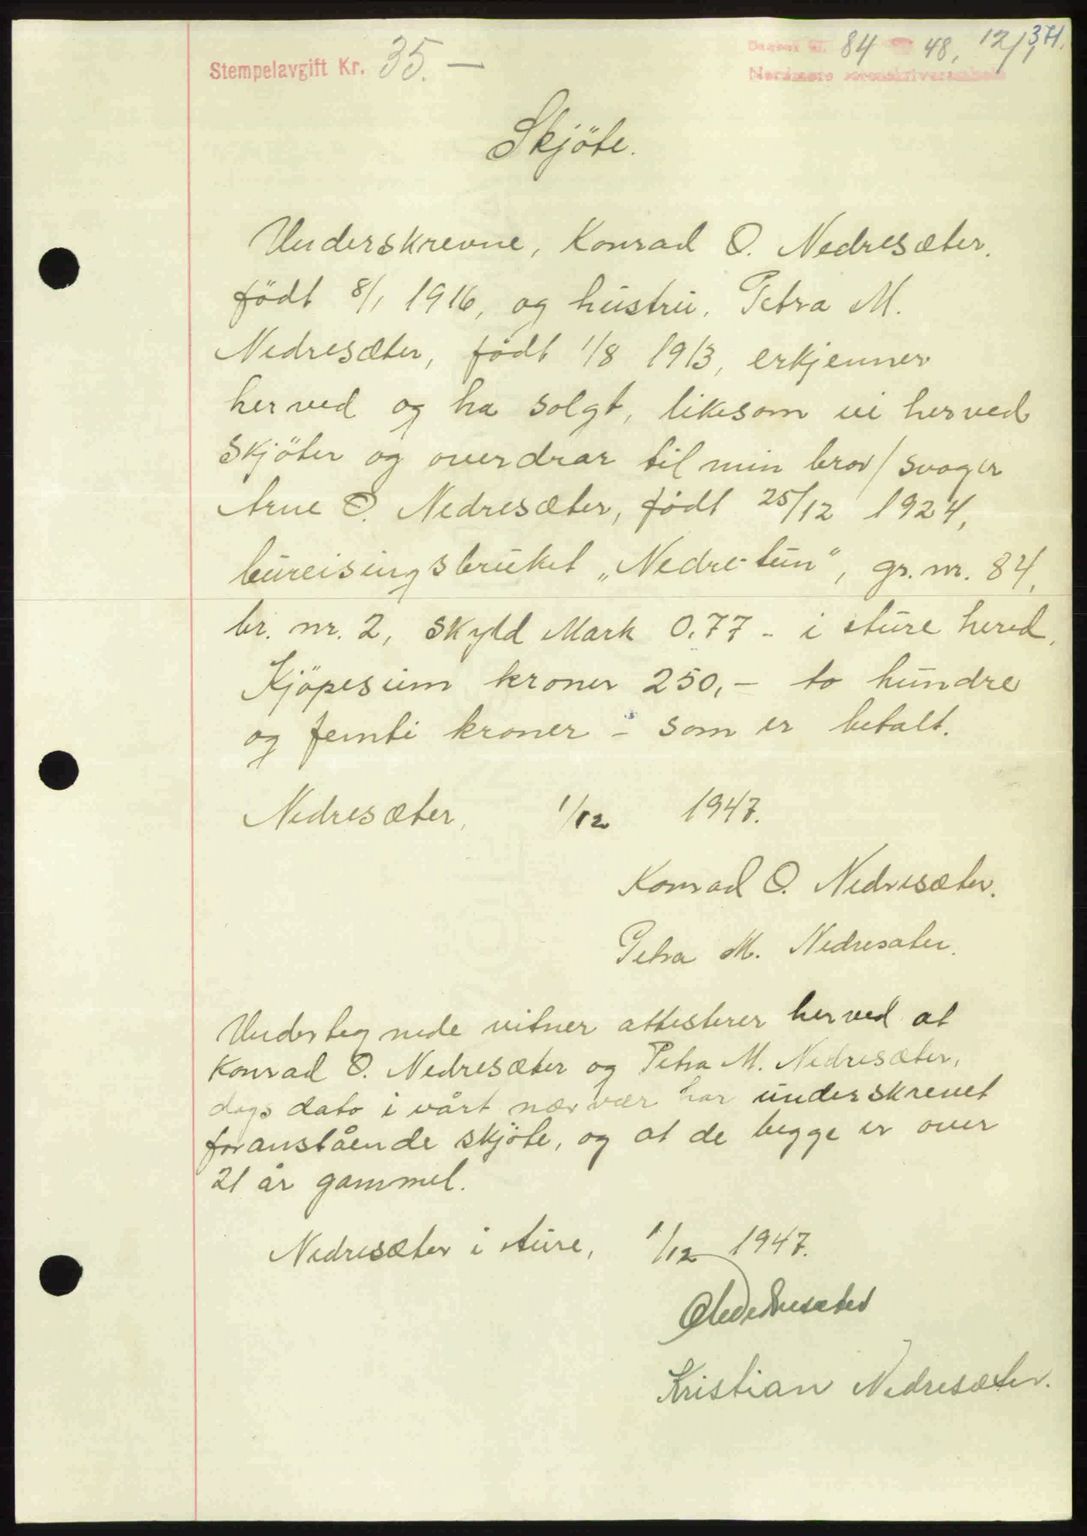 Stempelavgift Kr. 35.—
Dagbok nr. 84 48, 12/1
371.
Nordmøre sorenskriverembede
Skjöte.
Underskrevne, Konrad O. Nedresæter.
födt 8/1 1916, og hustru, Petra M.
Nedresæter, födt 1/8 1913, erkjenner
herved og ha solgt, likesom vi herved
skjöter og overdrar til min bror/svoger
Arne O. Nedresæter, födt 25/12 1924,
bureisingsbruket „Nedre-tun“, gr. nr. 84,
br. nr. 2, skyld Mark 0.77 - i Aure herred.
Kjöpesum kroner 250,- to hundre
og femti kroner - som er betalt.
Nedresæter, 1/12 1947.
Konrad O. Nedresæter.
Petra M. Nedresæter.
Undertegnede vitner attesterer herved at
Konrad O. Nedresæter og Petra M. Nedresæter,
dags dato i vårt nærvær har underskrevet
foranstående skjöte, og at de begge er over
21 år gammel.
Nedresæter i Aure, 1/12 1947.
Nedresæter
Kristian Nedresæter.